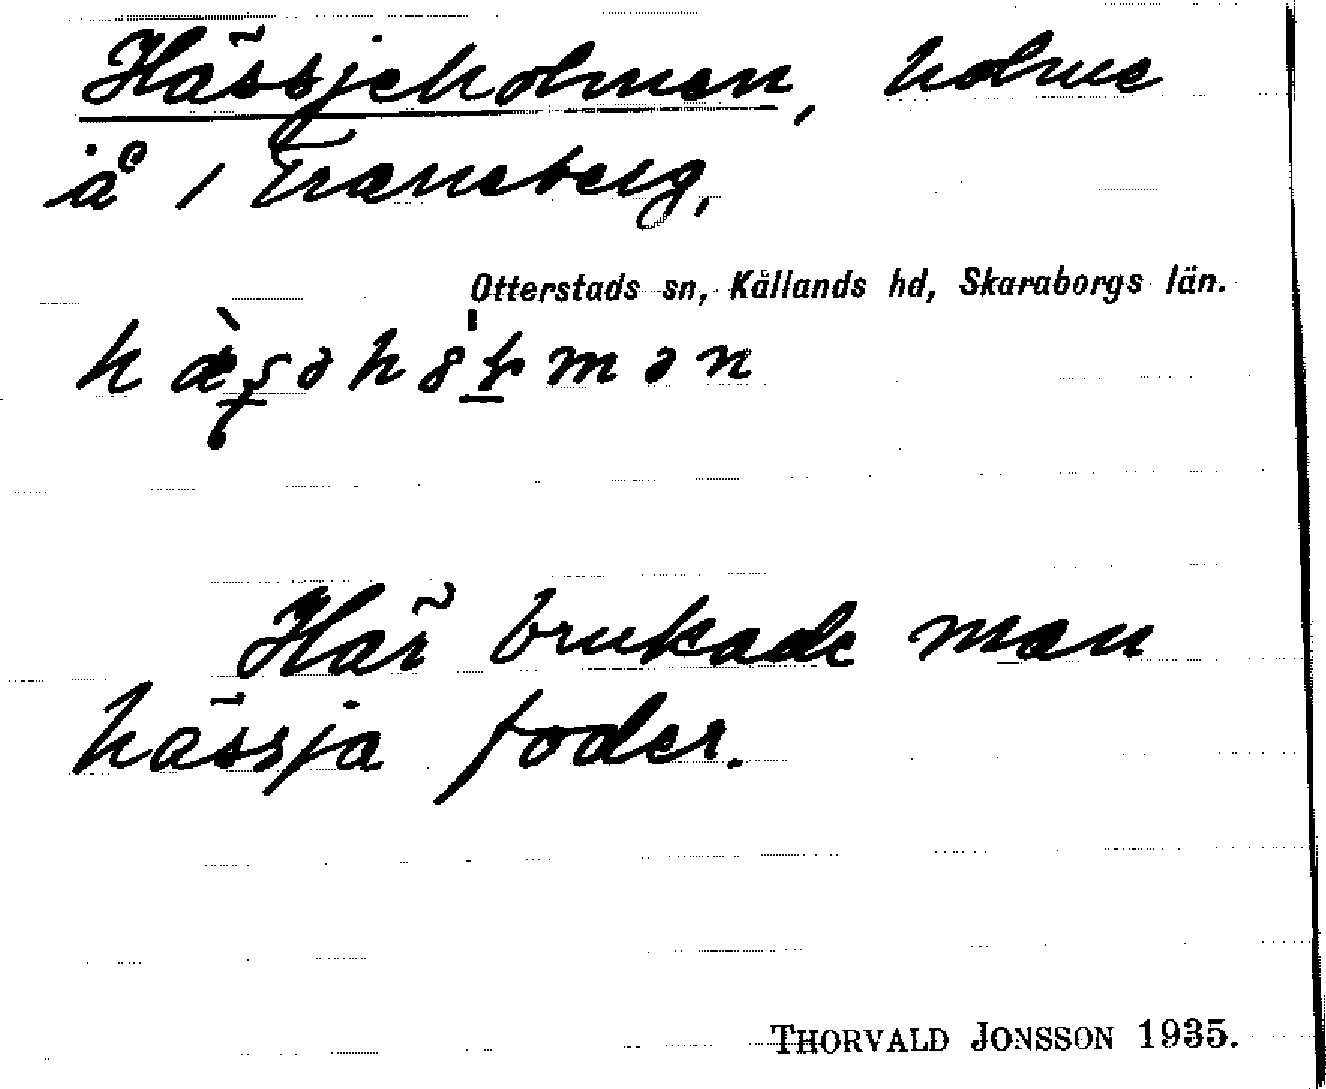 Hässjeholmen, holme
i å 1 Traneberg,
Otterstads sn, Kållands hd, Skaraborgs län.
Här brukade man
hässja foder.
THORVALD JONSSON 1935.